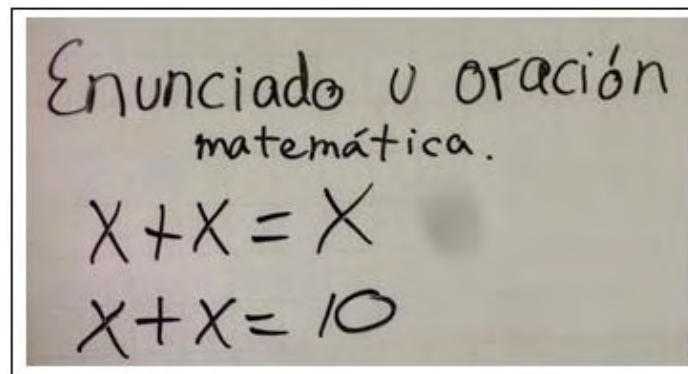 Enunciado u oración
matemática.
X+X=X
X+X=10